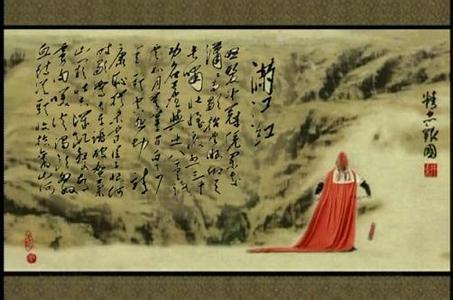 精忠報國
滿江紅
怒髮衝冠憑欄處
瀟瀟雨歇抬望眼仰天
長嘯壯懷激烈三十
功名塵與土八千里路
雲和月莫等閒白了少
年頭空悲切靖
康恥猶未雪臣子恨何
時滅駕長車踏破賀蘭
山缺壯志飢餐胡
虜肉笑談渴飲匈奴
血待從頭收拾舊山河